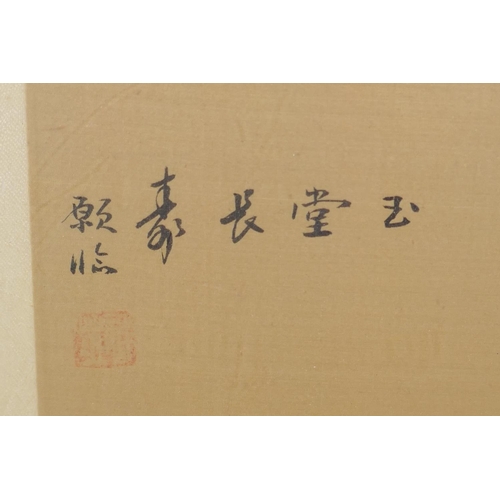 玉堂長壽
願臨